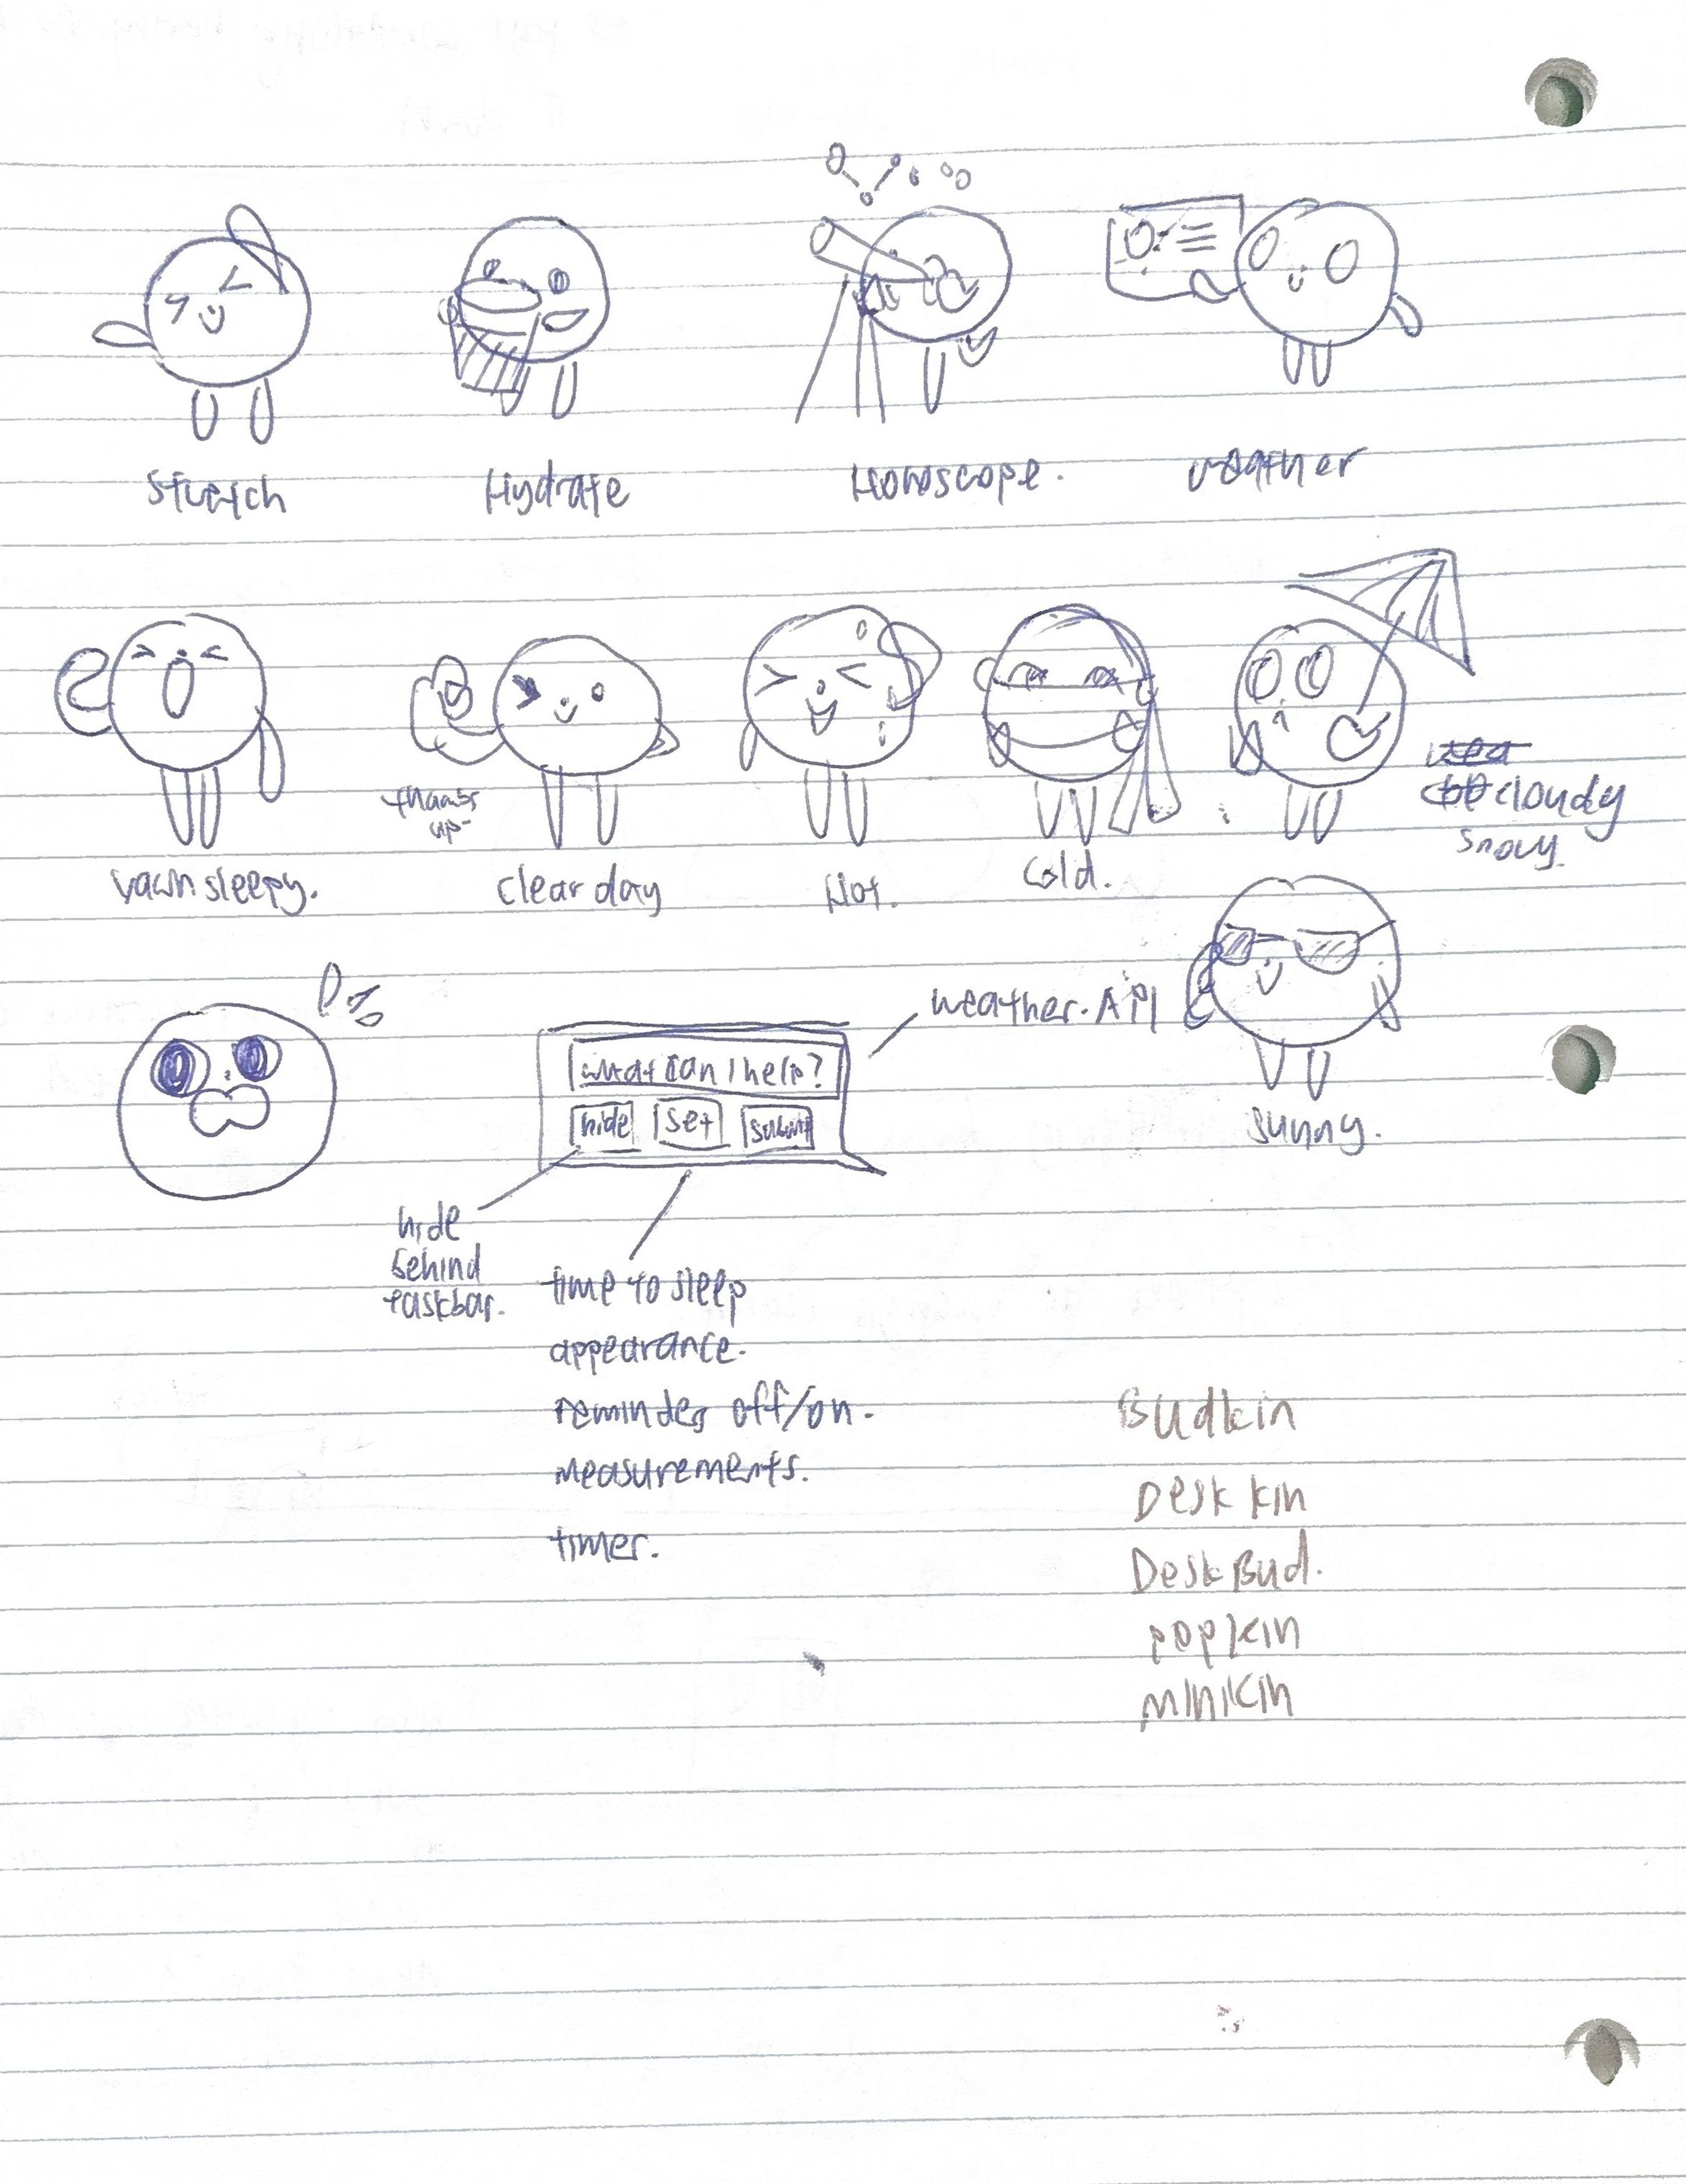 Stretch
Hydrate
Horoscope.
weather
thumbs
up
cloudy
snowy.
yawn sleepy.
clear day
Hot.
Cold.
weather. API
what can I help?
hide
set
submit
sunny.
hide
behind
taskbar.
time to sleep
appearance.
reminders off/on.
measurements.
timer.
Budkin
Desk kin
Desk Bud.
popkin
minikin